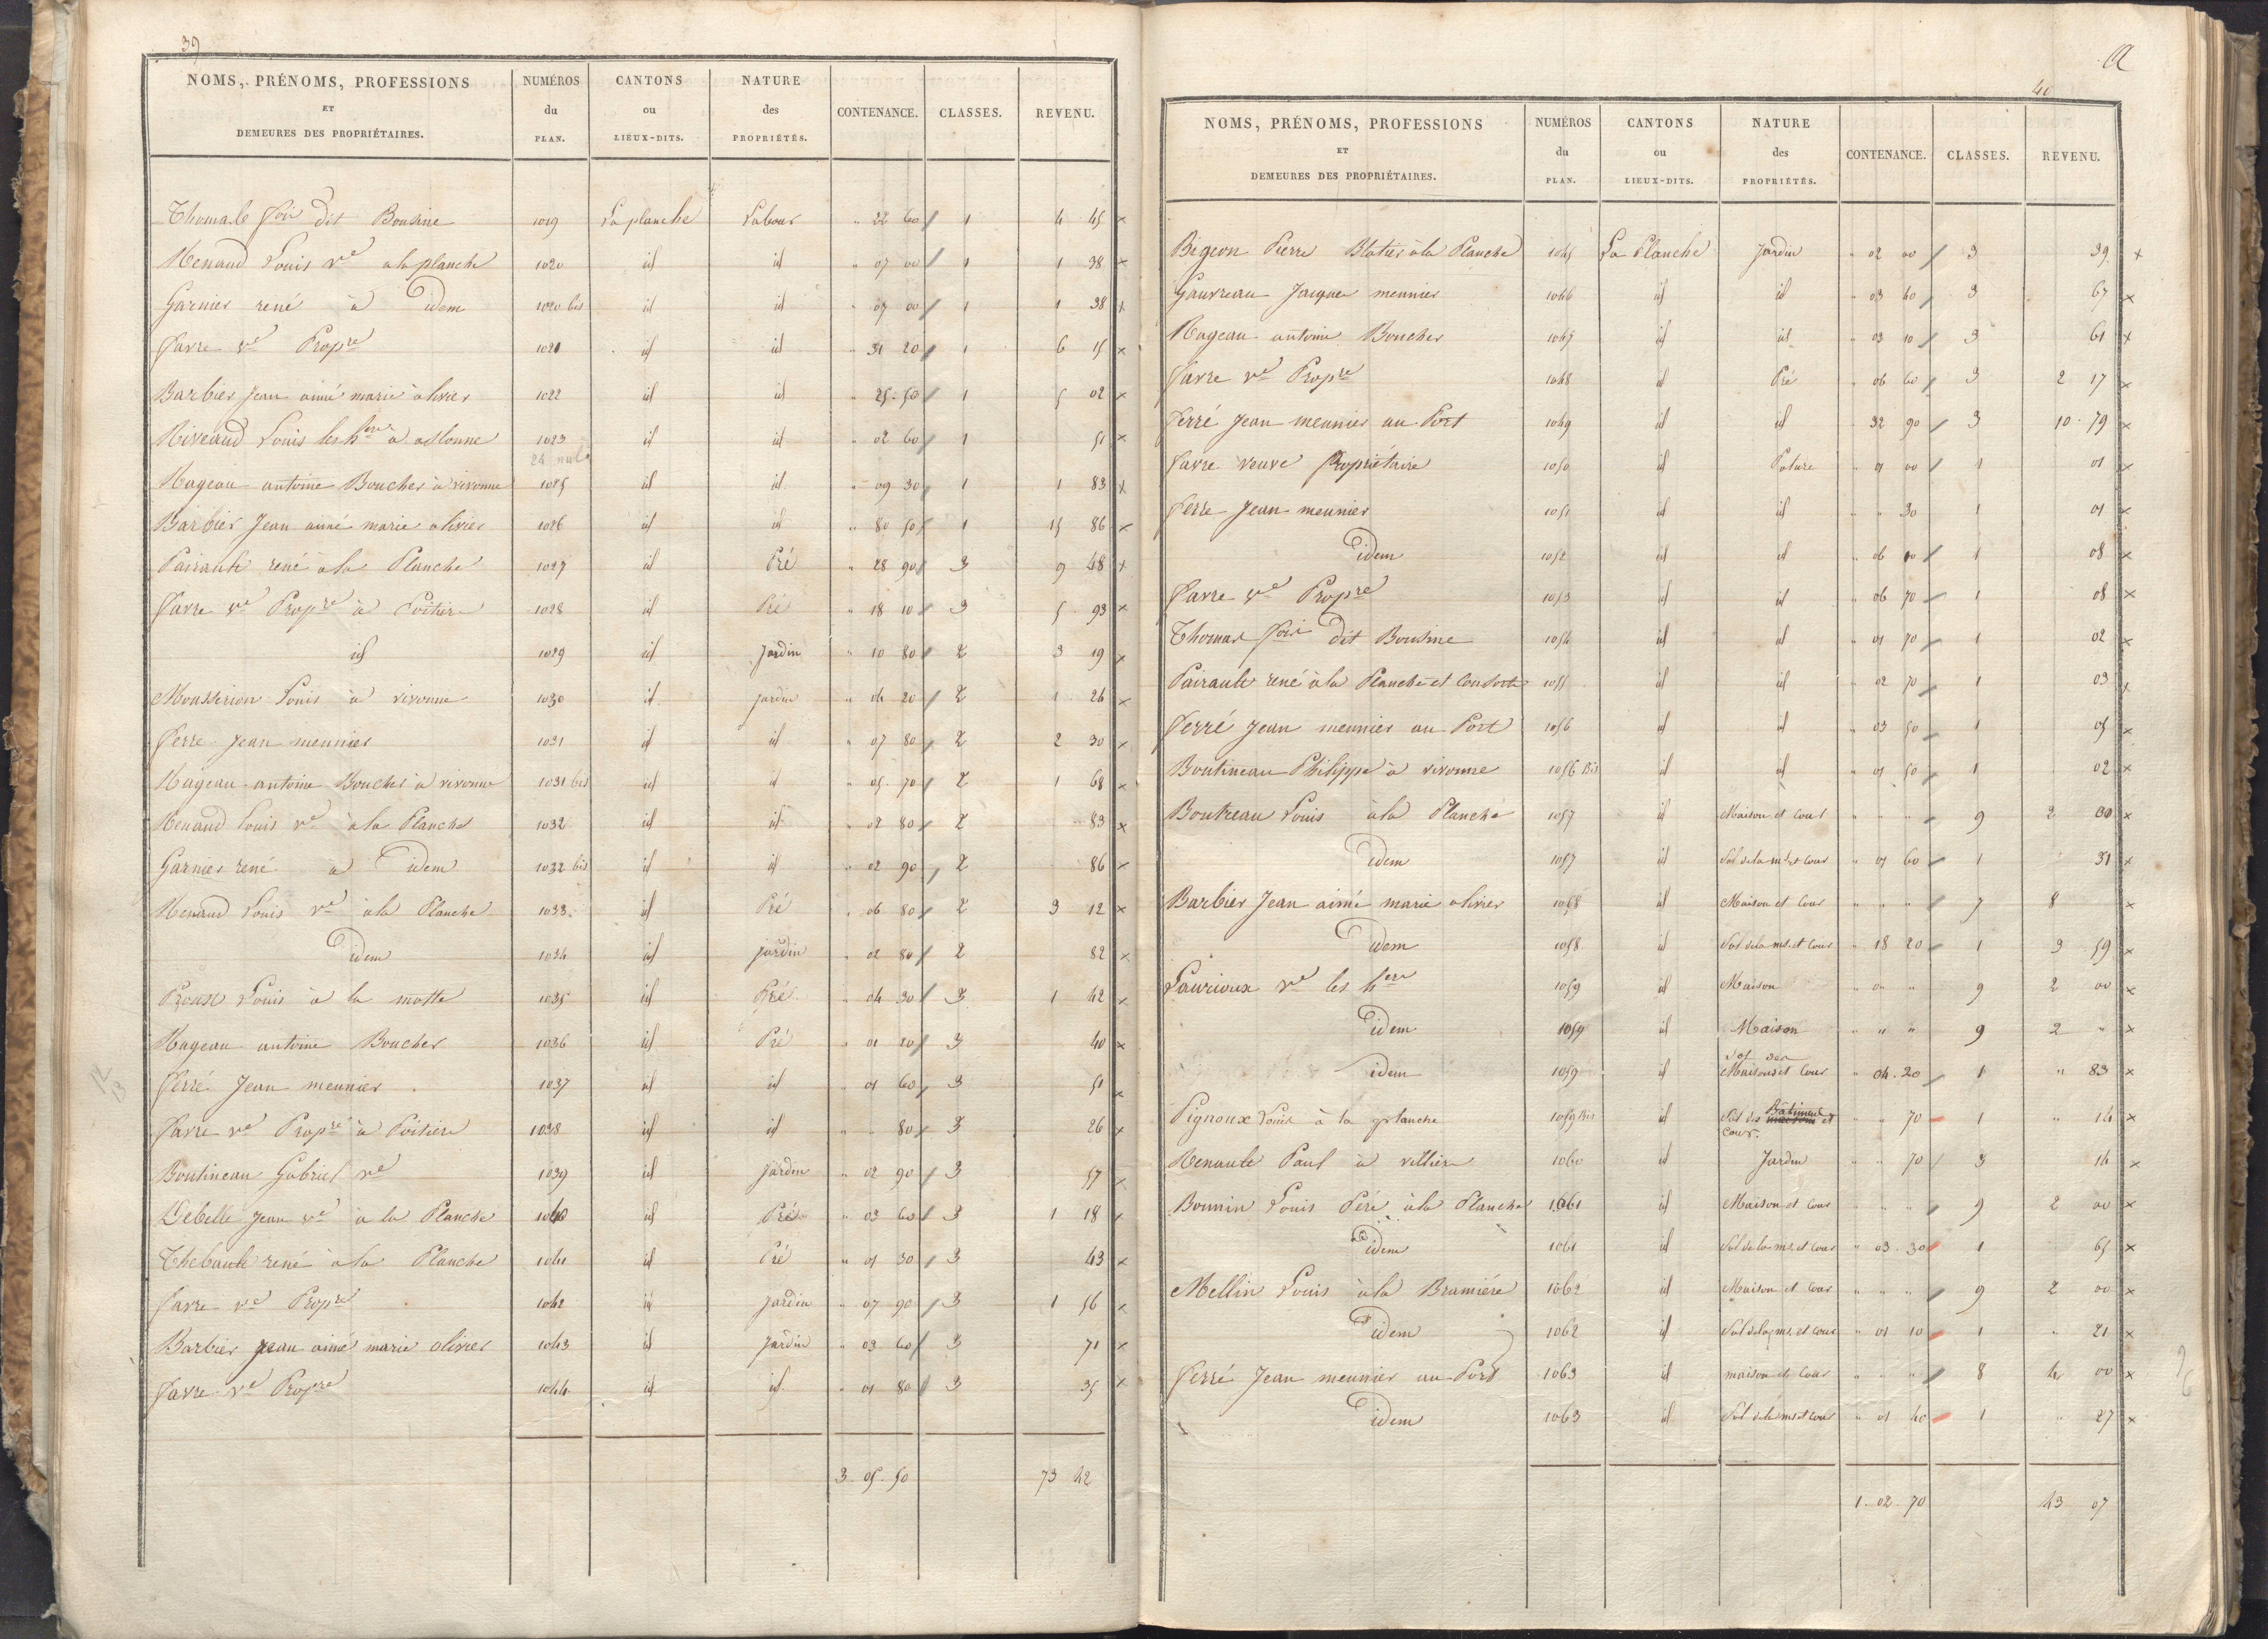 39
NOMS, PRÉNOMS, PROFESSIONS ET DEMEURES DES PROPRIÉTAIRES. NUMÉROS du PLAN. CANTONS ou LIEUX-DITS. NATURE des PROPRIÉTÉS. CONTENANCE. CLASSES. REVENU.
Thomas dit Bousine 1019 La planche Labour " 22 60 1 4 45 x
Renaud Louis ve a la planche 1020 id id " 07 00 1 1 38 x
Garnier rené à idem 1020 bis id id " 07 00 1 1 38 x
Favre ve Propre 1021 id id " 31 20 1 6 15 x
Barbier Jean aimé marie olivier 1022 id id " 25 50 1 5 02 x
Riveaud Louis les hers à aslonne 1023 id id " 02 60 1 51 x
24 nul
Rageau antoine Boucher à vivonne 1025 id id " 09 30 1 1 83 x
Barbier Jean aimé marie olivier 1026 id id " 80 50 1 15 86 x
Pairault rené à la Planche 1027 id Pré " 28 90 3 9 48 x
Favre ve Propre à Poitiers 1028 id Pré " 18 10 3 5 93 x
id 1029 id Jardin " 10 80 2 3 19 x
Mousserion Louis à vivonne 1030 id jardin " 04 20 2 1 26 x
Ferré Jean meunier 1031 id id " 07 80 2 2 30 x
Rageau antoine Boucher à vivonne 1031 bis id id " 05 70 2 1 68 x
Renaud Louis ve à la Planche 1032 id id " 02 80 2 83 x
Garnier rené à idem 1032 bis id id " 02 90 2 86 x
Renaud Louis ve à la Planche 1033 id Pré " 06 80 2 3 12 x
idem 1034 id jardin " 02 80 2 82 x
Proust Louis à la motte 1035 id Pré " 04 30 3 1 42 x
Rageau antoine Boucher 1036 id Pré " 01 20 3 40 x
Ferré Jean meunier 1037 id id " 01 60 3 51 x
Favre ve Propre à Poitiers 1038 id id " " 80 3 26 x
Boutineau Gabriel ve 1039 id jardin " 02 90 3 57 x
Debelle Jean ve à la Planche 1040 id Pré " 03 60 3 1 18 x
Thebault rené à la Planche 1041 id Pré " 01 30 3 43 x
Favre ve Propre 1042 id jardin " 07 90 3 1 56 x
Barbier jean aimé marie olivier 1043 id jardin " 03 60 3 71 x
Favre ve Propre 1044 id id " 01 80 3 35 x
3 05 50 73 42
40
NOMS, PRÉNOMS, PROFESSIONS ET DEMEURES DES PROPRIÉTAIRES. NUMÉROS du PLAN. CANTONS ou LIEUX-DITS. NATURE des PROPRIÉTÉS. CONTENANCE. CLASSES. REVENU.
Bigeon Pierre Blatier à la Planche 1045 La Planche Jardin " 02 00 3 39 x
Gauvreau Jacques meunier 1046 id id " 03 40 3 67 x
Rageau antoine Boucher 1047 id id " 03 10 3 61 x
Favre ve Propre 1048 id Pré " 06 60 3 2 17 x
Ferré Jean meunier au Port 1049 id id " 32 90 3 10 79 x
Favre veuve Propriétaire 1050 id Pature " 01 00 1 01 x
Ferré Jean meunier 1051 id id " " 30 1 01 x
idem 1052 id id " 06 00 1 08 x
Favre ve Propre 1053 id id " 06 70 1 08 x
Thomas dit Bousine 1054 id id " 01 70 1 02 x
Pairault rené à la Planche et Consorts 1055 id id " 02 70 1 03 x
Ferré Jean meunier au Port 1056 id id " 03 50 1 05 x
Boutineau Philippe à vivonne 1056 Bis id id " 01 50 1 02 x
Boutreau Louis à la Planche 1057 id Maison et Cour " " " 9 2 00 x
idem 1057 id Sol de la mon et Cour " 01 60 1 31 x
Barbier Jean aimé marie olivier 1058 id Maison et Cour " " " 7 8 x
idem 1058 id Sol de la mon et Cour " 18 20 1 3 59 x
Laurioux ve les hers 1059 id Maison " " " 9 2 00 x
idem 1059 id Maison " " " 9 2 " x
idem 1059 id Sol des Maisons et Cour " 04 20 1 " 83 x
Pignoux Louis à la planche 1059 Bis id Sol des Bâtiments et cour. " " 70 1 " 14 x
Renault Paul à villiers 1060 id Jardin " " 70 3 14 x
Bonnin Louis Père à la Planche 1061 id Maison et Cour " " " 9 2 00 x
idem 1061 id Sol de la mon et Cour " 03 30 1 65 x
Mellin Louis à la Bramière 1062 id Maison et Cour " " " 9 2 00 x
idem 1062 id Sol de la mon et Cour " 01 10 1 " 21 x
Ferré Jean meunier au Port 1063 id maison et Cour " " " 8 4 00 x
idem 1063 id Sol de la mon et Cour " 01 40 1 " 27 x
1 02 70 43 07